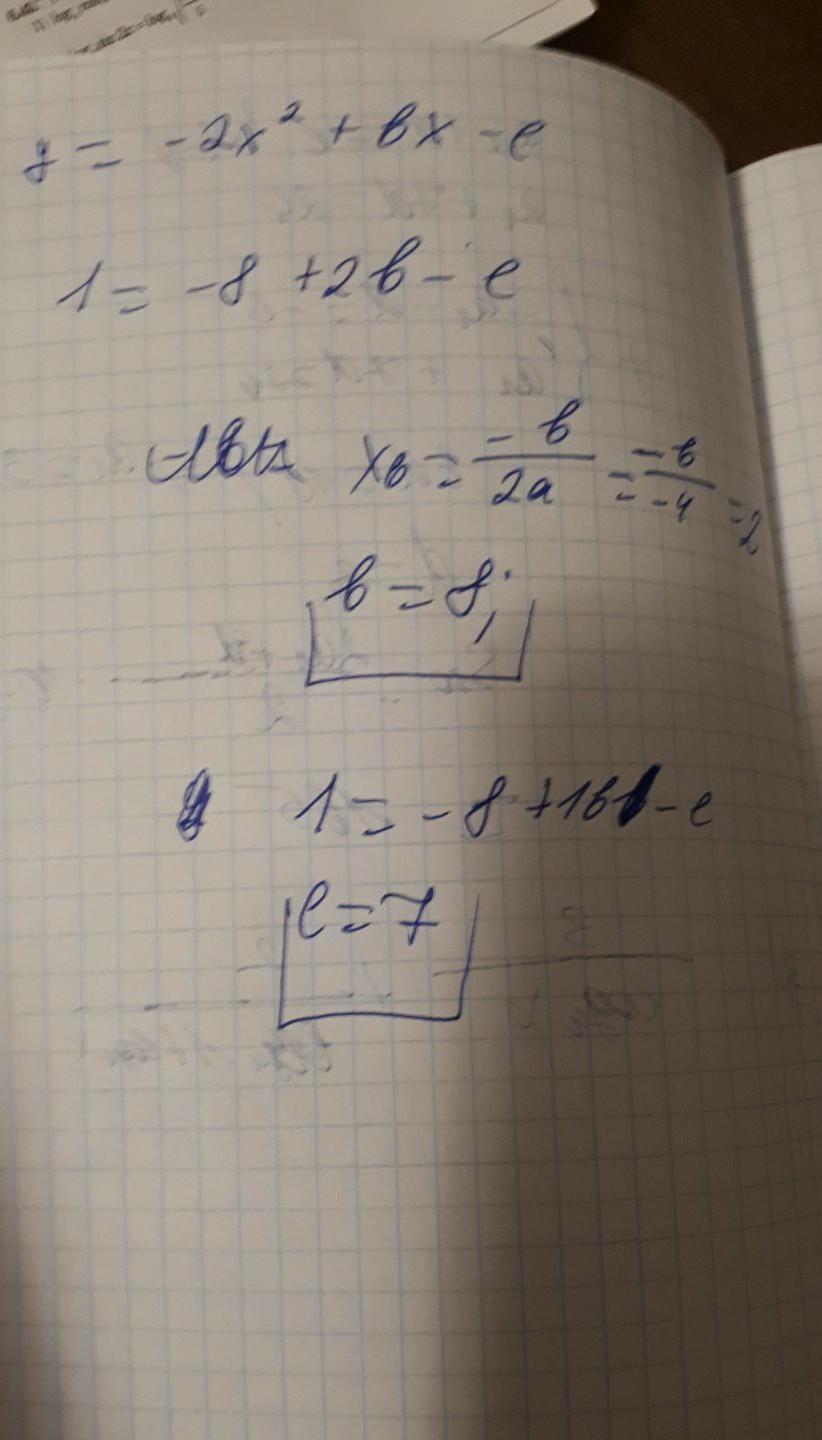 y = -2x² + bx - c
1 = -8 + 2b - c
x₆ = -b/2a = -b/-4 = 2
b = 8;
1 = -8 + 16 - c
c = 7